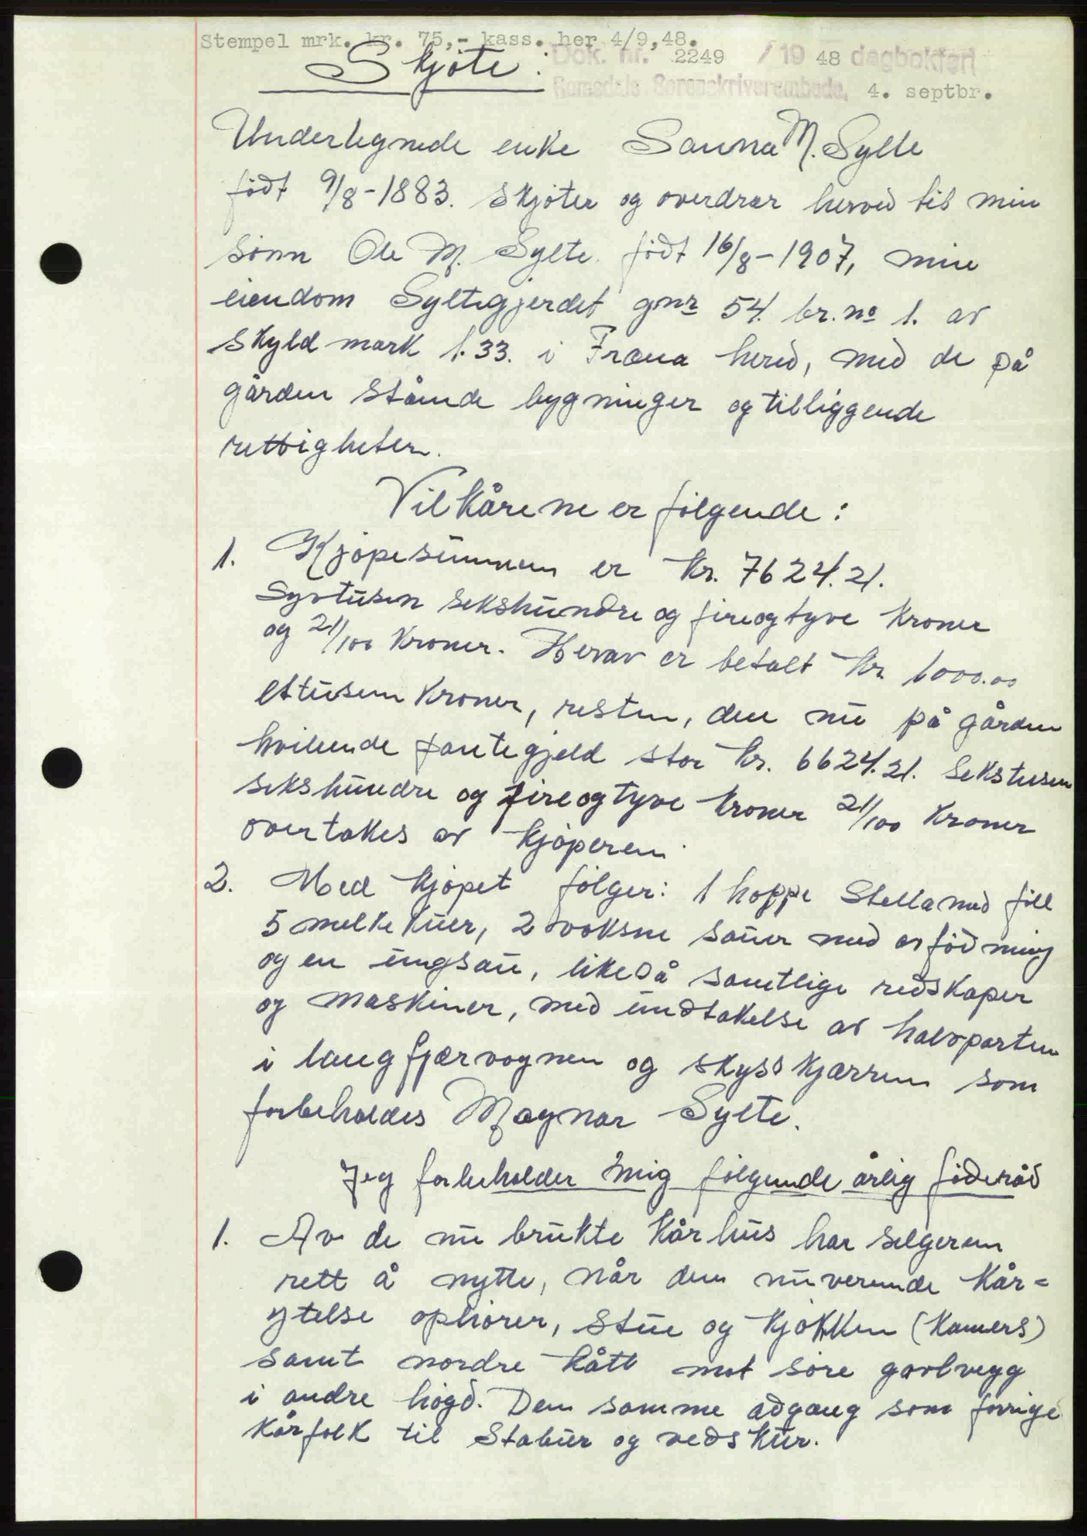 Stempel mrk. kr. 75,- kass. her 4/9,48.
Dok. nr. 2249 / 19 48 dagbokført
Skjöte:
Romsdals Sorenskriverembede, 4. septbr.
Underlegnede enke Sanna M. Sylte
födt 9/8-1883. skjöter og overdrar herved til min
sönn Ole M. Sylte födt 16/8-1907, min
eiendom Syltegjerdet gnr 54. br. no 1. av
skyld mark 1.33. i Fræna hered, med de på
gården stående bygninger og tilliggende
rettigheter.
Vilkårene er fölgende:
1. Kjöpesummen er kr. 7624.21.
Syvtusen sekshundre og fireogtyve kroner
og 21/100 kroner. Herav er betalt kr 1000.00
ettusen kroner, resten, den nu på gården
hvilende pantegjeld stor kr. 6624.21. Sekstusen
sekshundre og fireogtyve kroner 21/100 kroner
overtakes av kjöperen.
2. Med kjöpet fölger: 1 hoppe Stella med föll
5 melkekuer, 2 voksne sauer med avfödning
og en ungsau, likeså samtlige redskaper
og maskiner, med undtakelse av halvparten
i langfjærvognen og skysskjærren som
forbeholdes Magnar Sylte.
Jeg forbeholder mig fölgende årlig föderåd
1. Av de nu brukte kårhus har selgeren
rett å nytte, når den nuverende kår=
ytelse ophörer, stue og kjökken (kamers)
samt nordre kått mot söre gavlvegg
i andre högd. Den samme adgang som forrige
kårfolk til stabur og vedskur.